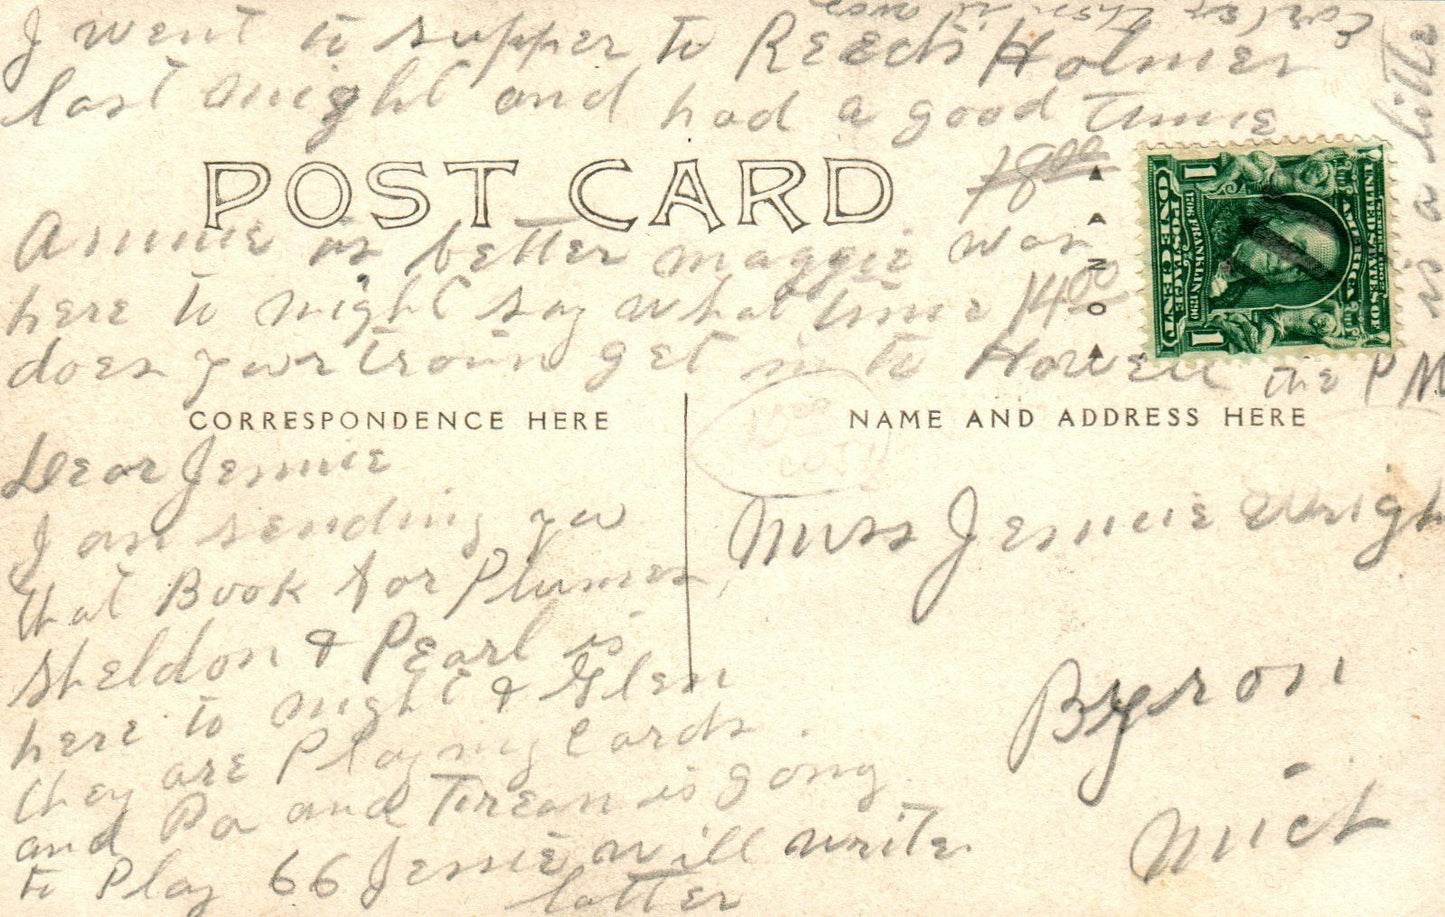 I went to supper to Reeds Holmes
last night and had a good time
POST CARD
18.00
Annie is better maggie was
here to night say what time
14.00
does your train get in to Howell the P M
AZO
UNITED STATES OF AMERICA
1706 FRANKLIN 1790
POSTAGE
ONE CENT
1 1
CORRESPONDENCE HERE
NAME AND ADDRESS HERE
Dear Jennie
I am sending you
that Book for Plumes
Sheldon & Pearl is
here to night & Glen
they are Playing Cards.
and Pa and is going
to Play 66 Jessie will write
latter
Miss Jennie Wrigh
Byron
Mich
is a little